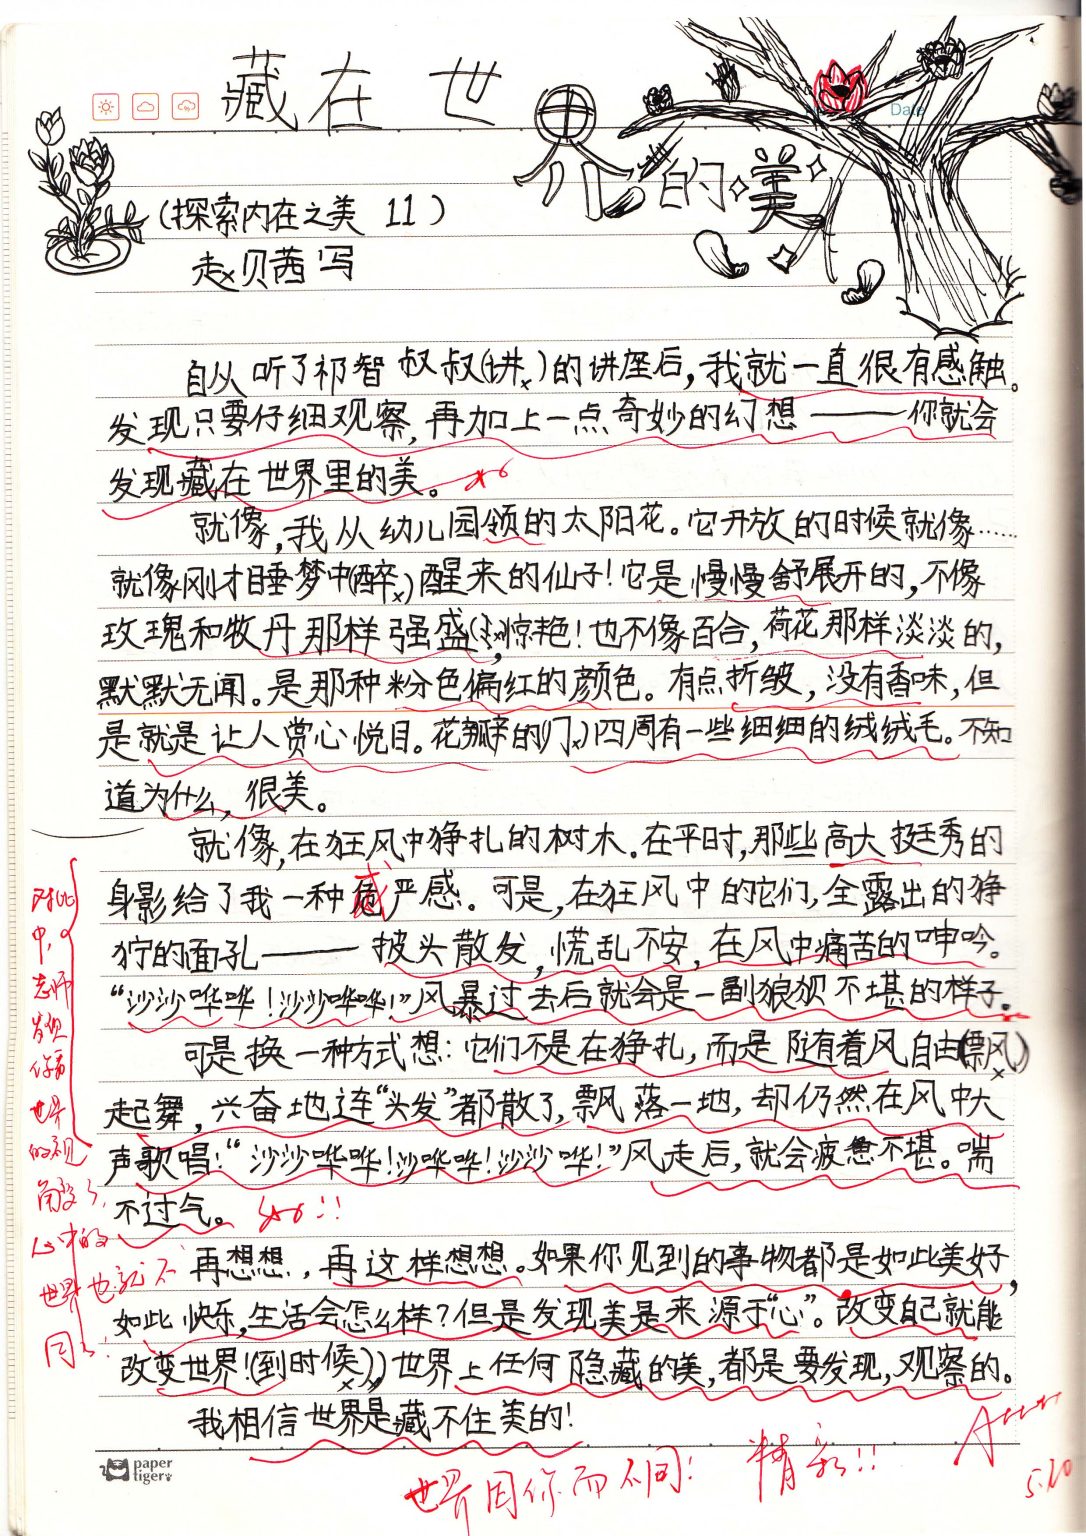 藏在世界的美
Date
(探索内在之美 11)
赵贝茜写
自从听了祁智叔叔(讲)的讲座后,我就一直很有感触。
发现只要仔细观察,再加上一点奇妙的幻想——你就会
发现藏在世界里的美。
就像,我从幼儿园领的太阳花。它开放的时候就像……
就像刚才睡梦中(醉)醒来的仙子!它是慢慢舒展开的,不像
玫瑰和牧丹那样强盛,惊艳!也不像百合,荷花那样淡淡的,
默默无闻。是那种粉色偏红的颜色。有点折皱,没有香味,但
是就是让人赏心悦目。花瓣的(门)四周有一些细细的绒绒毛。不知
道为什么,很美。
就像,在狂风中狰扎的树木。在平时,那些高大挺秀的
身影给了我一种威严感。可是,在狂风中的它们,全露出的狰
狞的面孔——披头散发,慌乱不安,在风中痛苦的呻吟。
“沙沙哗哗!沙沙哗哗!”风暴过去后就会是一副狼狈不堪的样子。
可是换一种方式想:它们不是在狰扎,而是随着风自由(飘)
起舞,兴奋地连“头发”都散了,飘落一地,却仍然在风中大
声歌唱:“沙沙哗哗!沙哗哗!沙沙哗!”风走后,就会疲惫不堪。喘
不过气。
对此
中,
老师
发现
你看
世界
的视
角变了,
心中的
世界也就不
同了!
再想想,再这样想想。如果你见到的事物都是如此美好,
如此快乐,生活会怎么样?但是发现美是来源于“心”。改变自己就能
改变世界!(到时候)世界上任何隐藏的美,都是要发现,观察的。
我相信世界是藏不住美的!
paper
tiger
世界因你而不同! 精彩!!
5.20